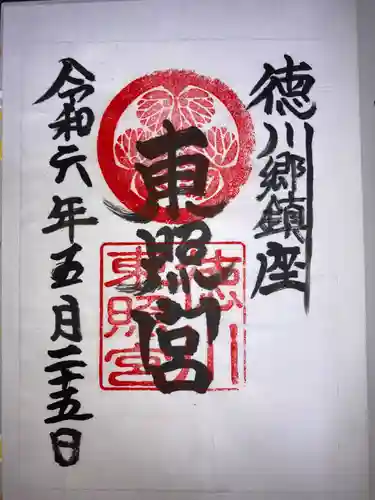 徳川郷鎮座
東照宮
令和六年五月二十五日
徳川
東照宮